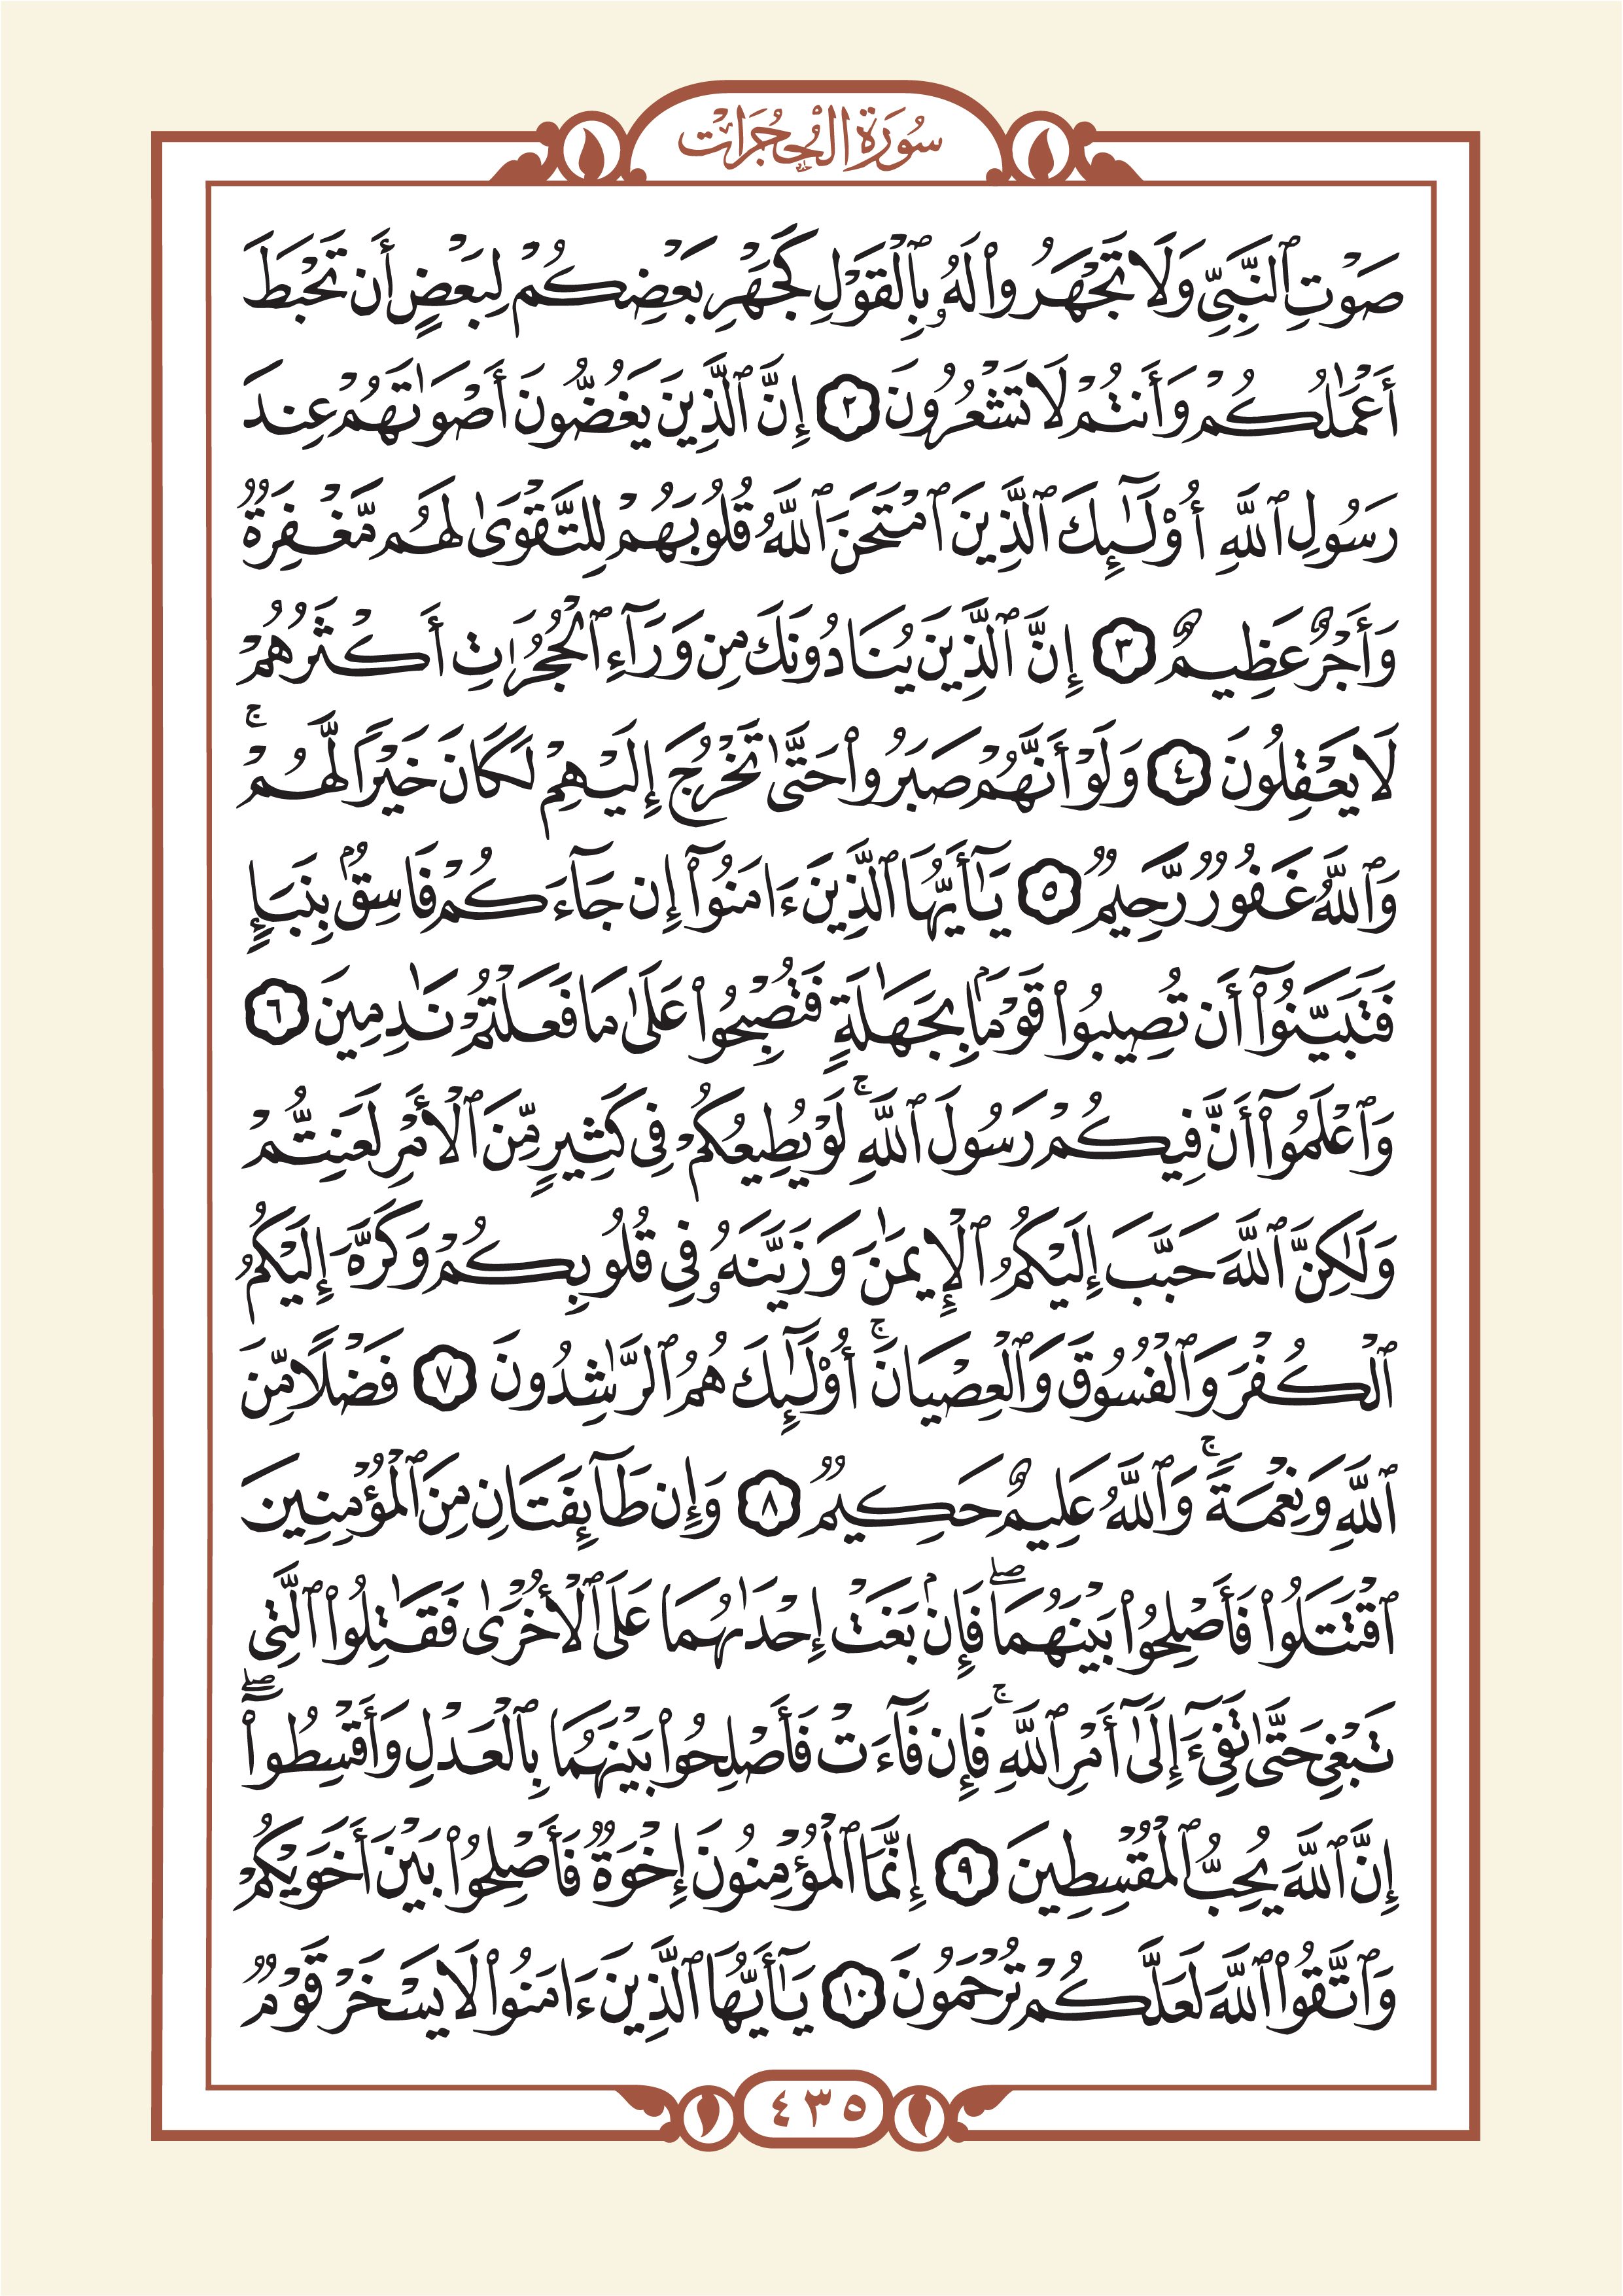 سُورَةُ الْحُجُرَاتِ
صَوْتِ ٱلنَّبِيِّ وَلَا تَجْهَرُوا۟ لَهُۥ بِٱلْقَوْلِ كَجَهْرِ بَعْضِكُمْ لِبَعْضٍ أَن تَحْبَطَ
أَعْمَـٰلُكُمْ وَأَنتُمْ لَا تَشْعُرُونَ ٢ إِنَّ ٱلَّذِينَ يَغُضُّونَ أَصْوَٰتَهُمْ عِندَ
رَسُولِ ٱللَّهِ أُو۟لَـٰٓئِكَ ٱلَّذِينَ ٱمْتَحَنَ ٱللَّهُ قُلُوبَهُمْ لِلتَّقْوَىٰ لَهُم مَّغْفِرَةٌ
وَأَجْرٌ عَظِيمٌ ٣ إِنَّ ٱلَّذِينَ يُنَادُونَكَ مِن وَرَآءِ ٱلْحُجُرَٰتِ أَكْثَرُهُمْ
لَا يَعْقِلُونَ ٤ وَلَوْ أَنَّهُمْ صَبَرُوا۟ حَتَّىٰ تَخْرُجَ إِلَيْهِمْ لَكَانَ خَيْرًا لَّهُمْ ۚ
وَٱللَّهُ غَفُورٌ رَّحِيمٌ ٥ يَـٰٓأَيُّهَا ٱلَّذِينَ ءَامَنُوٓا۟ إِن جَآءَكُمْ فَاسِقٌۢ بِنَبَإٍ
فَتَبَيَّنُوٓا۟ أَن تُصِيبُوا۟ قَوْمًۢا بِجَهَـٰلَةٍ فَتُصْبِحُوا۟ عَلَىٰ مَا فَعَلْتُمْ نَـٰدِمِينَ ٦
وَٱعْلَمُوٓا۟ أَنَّ فِيكُمْ رَسُولَ ٱللَّهِ ۚ لَوْ يُطِيعُكُمْ فِى كَثِيرٍ مِّنَ ٱلْأَمْرِ لَعَنِتُّمْ
وَلَـٰكِنَّ ٱللَّهَ حَبَّبَ إِلَيْكُمُ ٱلْإِيمَـٰنَ وَزَيَّنَهُۥ فِى قُلُوبِكُمْ وَكَرَّهَ إِلَيْكُمُ
ٱلْكُفْرَ وَٱلْفُسُوقَ وَٱلْعِصْيَانَ ۚ أُو۟لَـٰٓئِكَ هُمُ ٱلرَّٰشِدُونَ ٧ فَضْلًا مِّنَ
ٱللَّهِ وَنِعْمَةً ۚ وَٱللَّهُ عَلِيمٌ حَكِيمٌ ٨ وَإِن طَآئِفَتَانِ مِنَ ٱلْمُؤْمِنِينَ
ٱقْتَتَلُوا۟ فَأَصْلِحُوا۟ بَيْنَهُمَا ۖ فَإِنۢ بَغَتْ إِحْدَىٰهُمَا عَلَى ٱلْأُخْرَىٰ فَقَـٰتِلُوا۟ ٱلَّتِى
تَبْغِى حَتَّىٰ تَفِىٓءَ إِلَىٰٓ أَمْرِ ٱللَّهِ ۚ فَإِن فَآءَتْ فَأَصْلِحُوا۟ بَيْنَهُمَا بِٱلْعَدْلِ وَأَقْسِطُوٓا۟ ۖ
إِنَّ ٱللَّهَ يُحِبُّ ٱلْمُقْسِطِينَ ٩ إِنَّمَا ٱلْمُؤْمِنُونَ إِخْوَةٌ فَأَصْلِحُوا۟ بَيْنَ أَخَوَيْكُمْ
وَٱتَّقُوا۟ ٱللَّهَ لَعَلَّكُمْ تُرْحَمُونَ ١٠ يَـٰٓأَيُّهَا ٱلَّذِينَ ءَامَنُوا۟ لَا يَسْخَرْ قَوْمٌ
٤٣٥